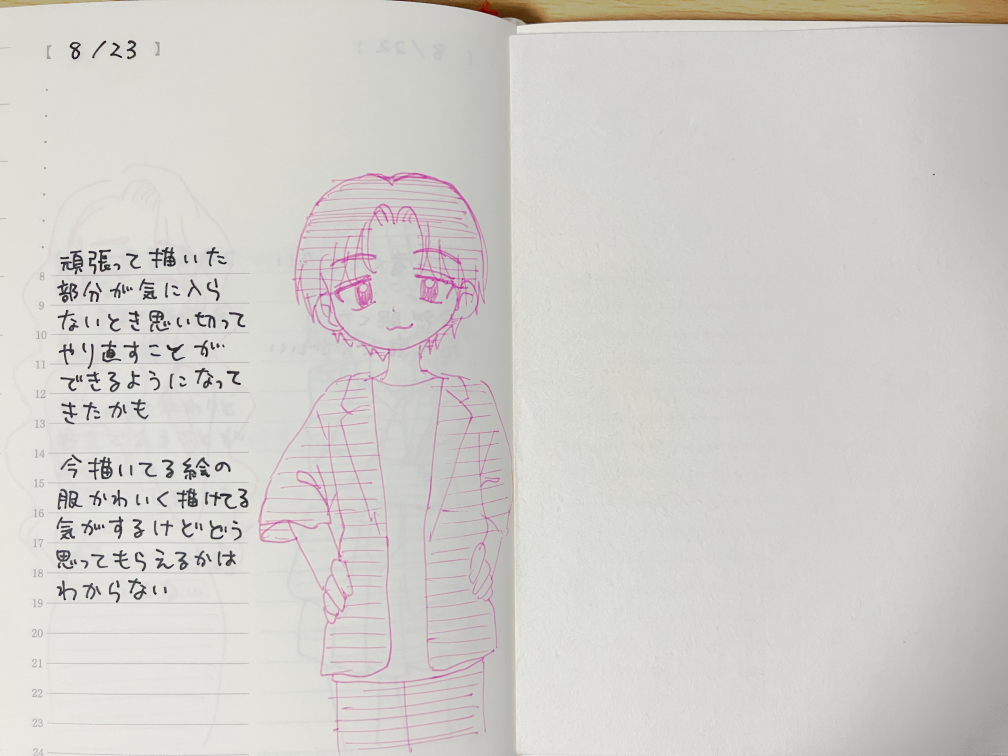 [ 8/23 ]
頑張って描いた
部分が気に入ら
ないとき思い切って
やり直すことが
できるようになって
きたかも
今描いてる絵の
服かわいく描けてる
気がするけどどう
思ってもらえるかは
わからない
8
9
10
11
12
13
14
15
16
17
18
19
20
21
22
23
24